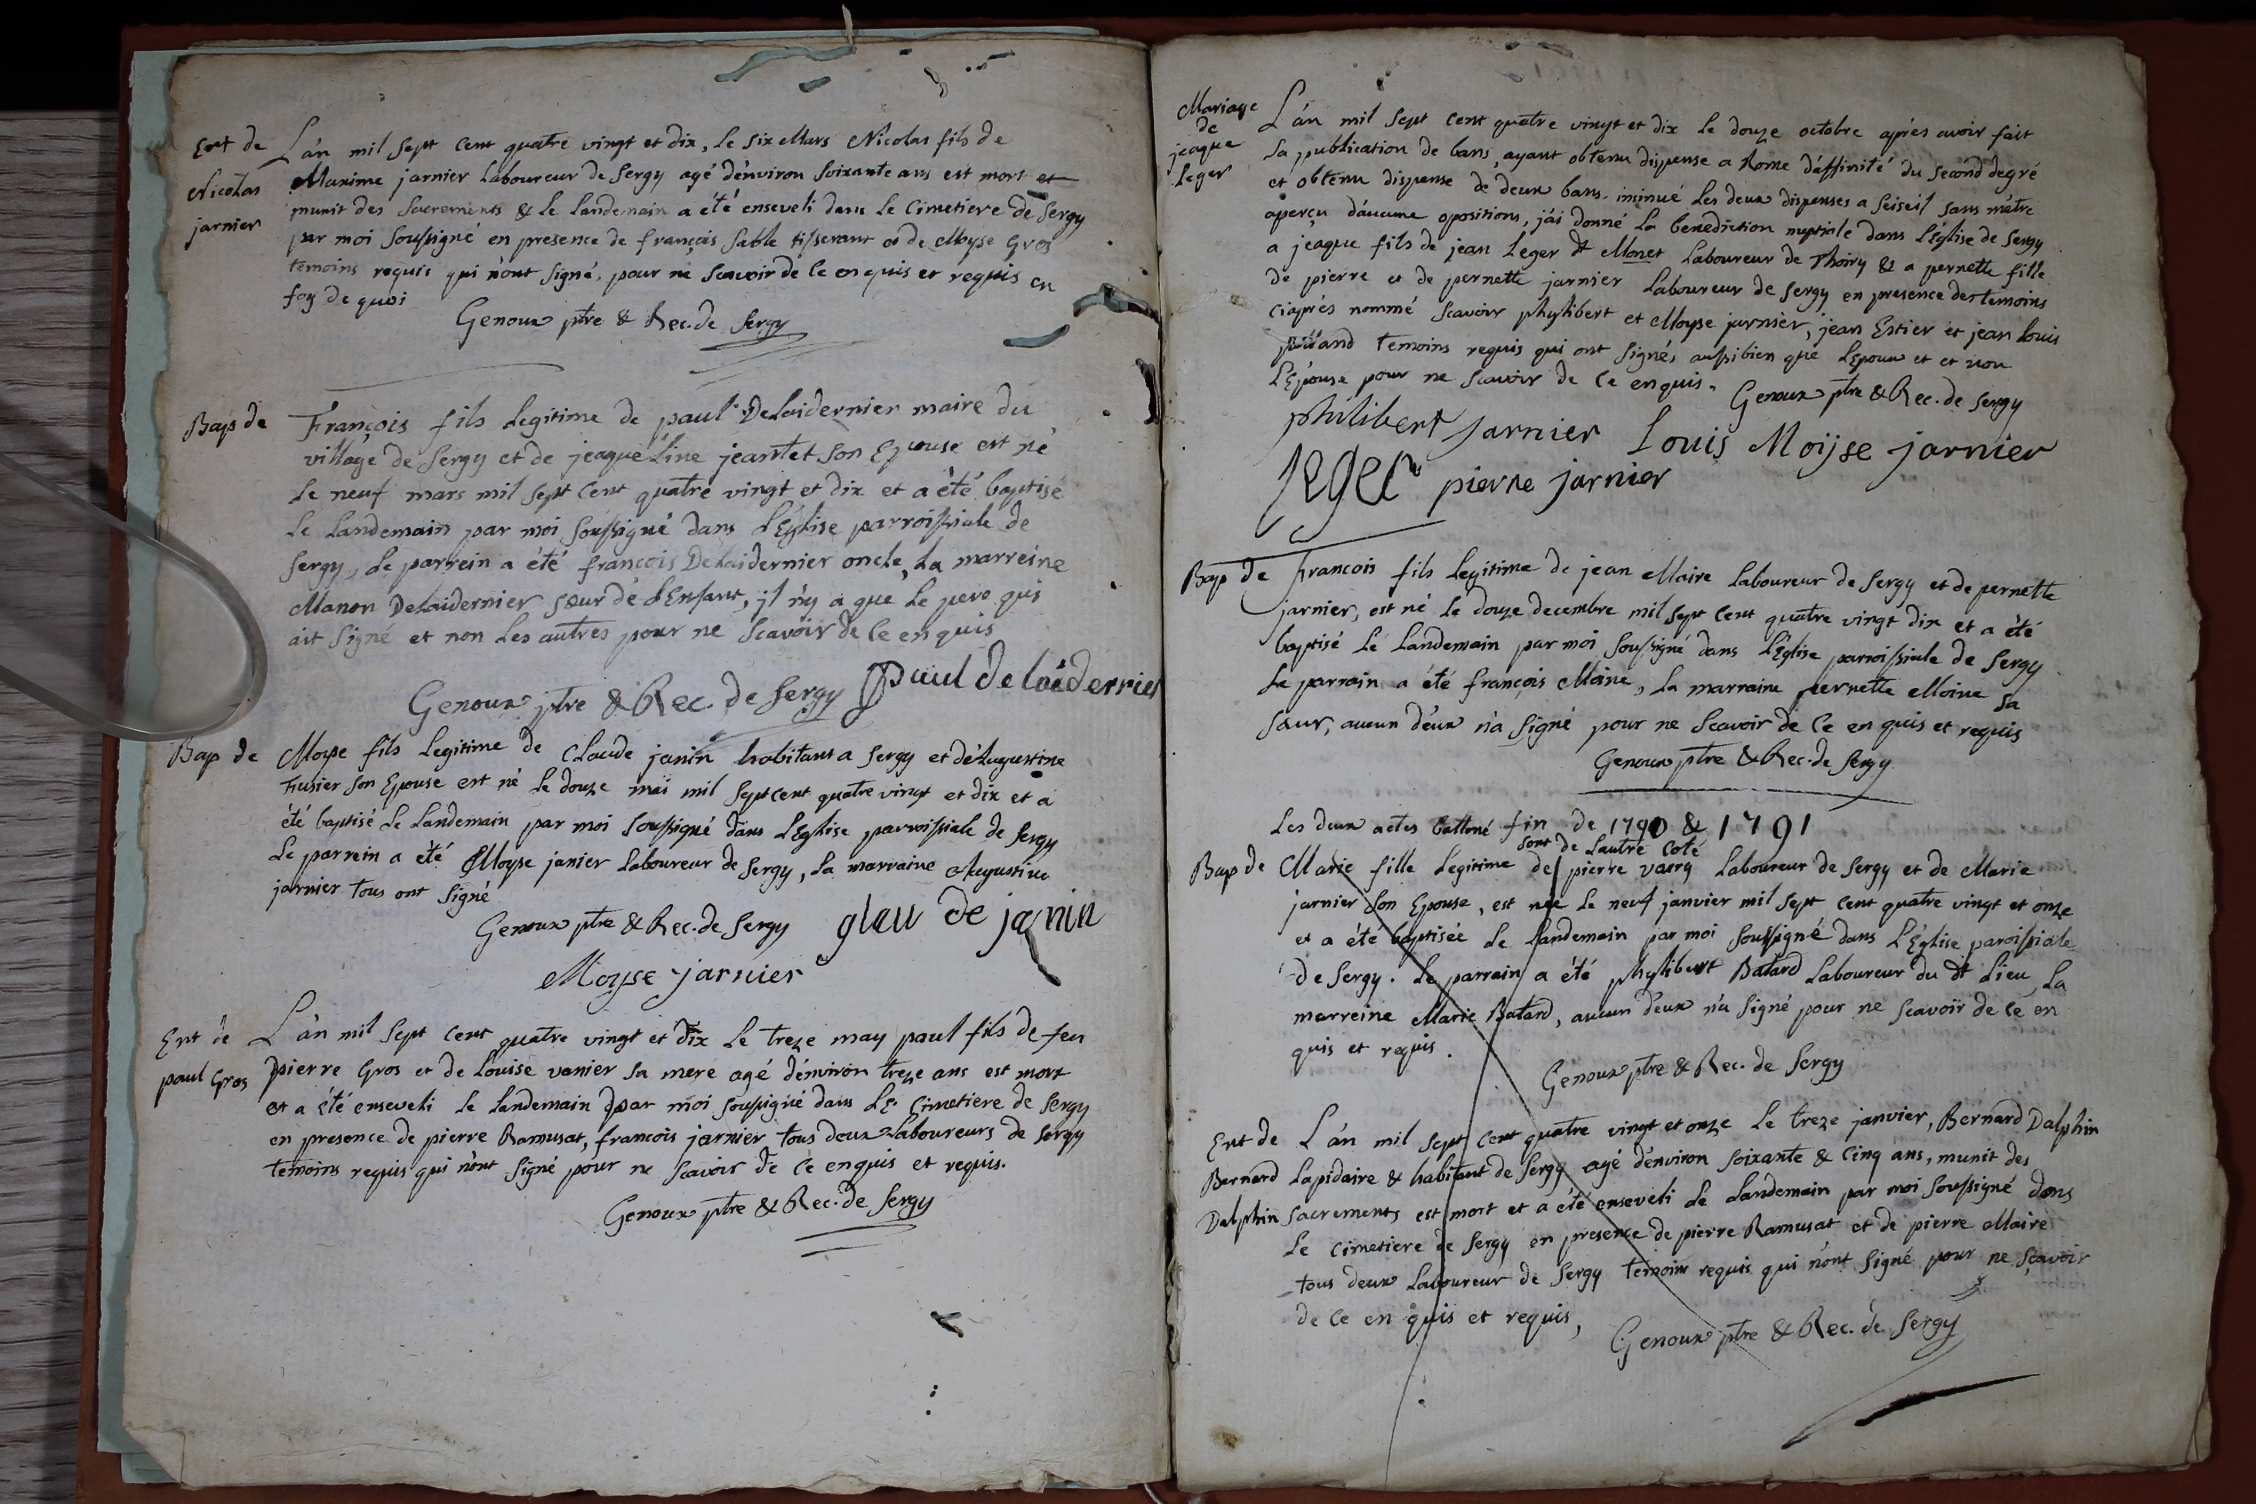 Ent de
Nicolas
jarnier
L'án mil sept cent quatre vingt et dix, le six Mars Nicolas fils de
Maxime jarnier Laboureur de Sergy agé d'énviron Soixante ans est mort et
munit des Sacrements & le landemain a été enseveli dans le Cimetiere de Sergy
par moi Soussigné en presence de françois Sable tisserant & de Moyse Gros
temoins requis qui n'ont signé, pour ne Scavoir de ce en quis et requis en
foy de quoi
Genoux ptre & Rec. de Sergy
Bap de
François fils legitime de paul Delaidernier maire du
village de Sergy et de jeaqueline jeantet son Epouse est né
le neuf mars mil sept cent quatre vingt et dix et a été baptisé
le landemain par moi Soussigné dans l'Eglise parroissiale de
Sergy, le parrein a été françois Delaidernier oncle, la marreine
Manon Delaidernier sœur de l'Enfant, jl n'y a que le pere qui
ait signé et non les autres pour ne Scavoir de ce en quis
Genoux ptre & Rec. de Sergy
paul de laiderrier
Bap de
Moyse fils legitime de Claude janin habitant a Sergy et d'Augustine
fusier son Epouse est né le douze mai mil sept cent quatre vingt et dix et a
été baptisé le landemain par moi Soussigné dans l'Eglise parroissiale de Sergy
le parrein a été Moyse janier laboureur de Sergy, la marraine Augustine
jarnier tous ont signé
Genoux ptre & Rec. de Sergy
glau de janin
Moyse jarnier
Ent de
paul Gros
L'án mil sept cent quatre vingt et dix le treze may paul fils de feu
pierre Gros et de Louise vanier sa mere agé d'énviron treze ans est mort
et a été enseveli le landemain par moi soussigné dans le Cimetiere de Sergy
en presence de pierre Ramusat, francois jarnier tous deux Laboureurs de Sergy
temoins requis qui n'ont signé pour ne scavoir de ce enquis et requis.
Genoux ptre & Rec. de Sergy
Mariage
de
jeaque
Leger
L'án mil sept cent quatre vingt et dix le douze octobre aprés avoir fait
la publication de bans, ayant obtenu dispense a Rome d'áffinité du second degré
et obtenu dispense de deux bans. insinué les deux dispenses a Seiseil sans m'étre
aperçu d'áucune opositions, j'ái donné la benediction nuptiale dans l'Eglise de Sergy
a jeaque fils de jean Leger dt Monet Laboureur de Thoiry & a pernette fille
de pierre et de pernette jarnier Laboureur de Sergy en presence des temoins
ciaprés nommé scavoir phylibert et Moyse jarnier, jean Estier et jean Louis
temoins requis qui ont signés aussi bien que l'Epoux et et non
l'Epouse pour ne scavoir de ce enquis.
Genoux ptre & Rec. de Sergy
philibert jarnier Louis Moÿse jarnier
leger pierre jarnier
Bap de
francois fils legitime de jean Maire Laboureur de Sergy et de pernette
jarnier, est né le douze decembre mil sept cent quatre vingt dix et a été
baptisé le landemain par moi Soussigné dans l'Eglise parroissiale de Sergy
le parrain a été françois Moine, la marraine pernette Moine sa
sœur, aucun d'éux n'a signé pour ne scavoir de ce en quis et requis
Genoux ptre & Rec. de Sergy
Les deux actes battoné fin de 1790 & 1791
sont de l'autre coté
Bap de
Marie fille legitime de pierre vairy Laboureur de Sergy et de Marie
jarnier son Epouse, est née le neuf janvier mil sept cent quatre vingt et onze
et a été baptisée le landemain par moi Soussigné dans l'Eglise paroissiale
de Sergy. le parrain a été phylibert Batard Laboureur du dt Lieu, la
marreine Marie Batard, aucun d'eux n'a signé pour ne scavoir de ce en
quis et requis.
Genoux ptre & Rec. de Sergy
Ent de
Bernard
Dalphin
L'án mil sept cent quatre vingt et onze le treze janvier, Bernard Dalphin
lapidaire & habitant de Sergy agé d'énviron soixante & Cinq ans, munit des
sacrements est mort et a été enseveli le landemain par moi Soussigné dans
le cimetiere de Sergy en presence de pierre Ramusat et de pierre Maire
tous deux Laboureur de Sergy temoins requis qui n'ont signé pour ne scavoir
de ce en quis et requis,
Genoux ptre & Rec. de Sergy